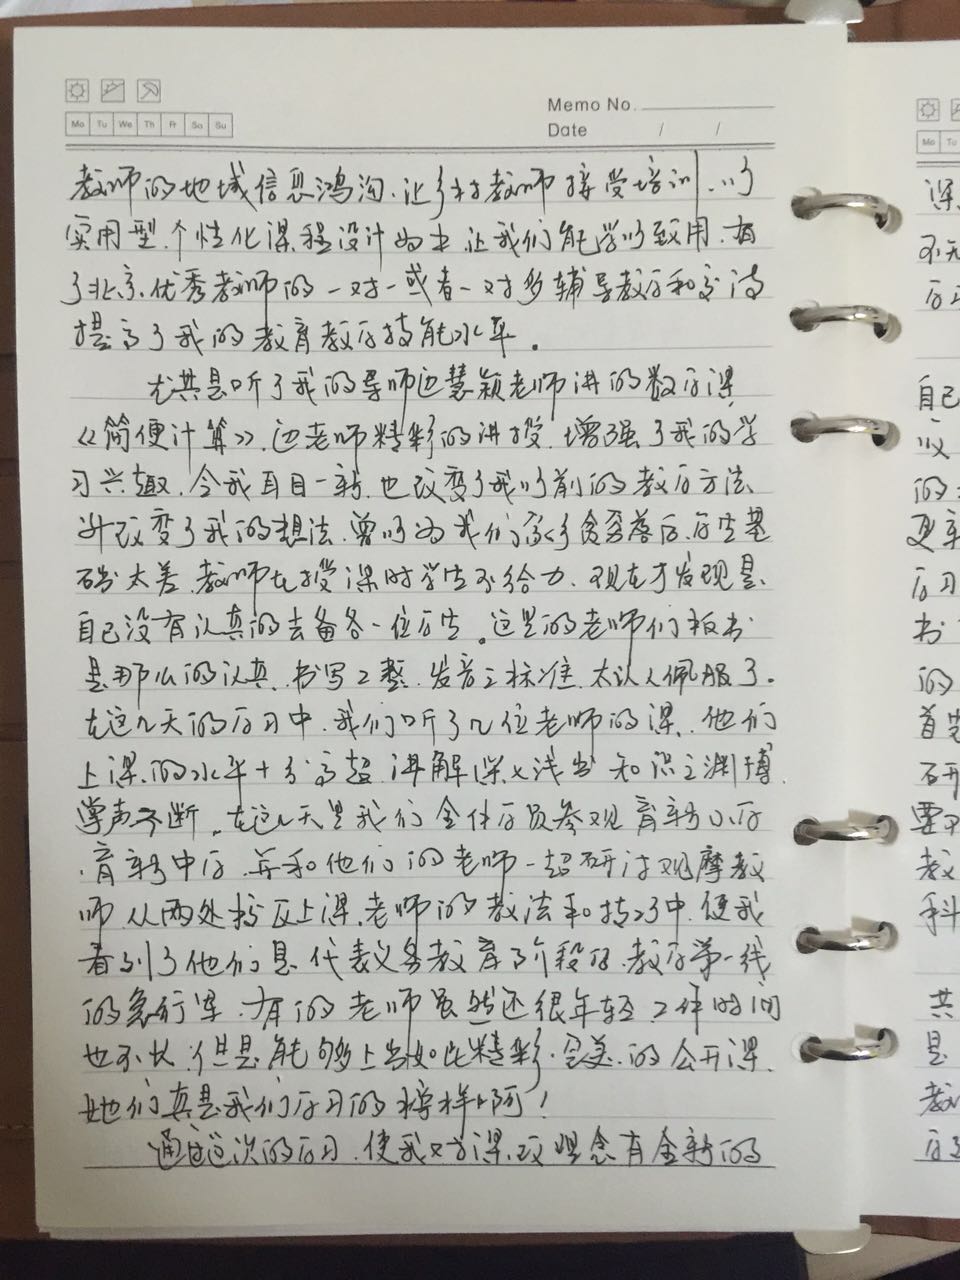 Memo No.
Date / /
Mo Tu We Th Fr Sa Su
教师的地域信息鸿沟,让乡村教师接受培训,以
实用型、个性化课程设计为主,让我们能学以致用,有
了北京优秀教师的一对一或者一对多辅导教学和交流
提高了我的教育教学技能水平。
尤其是听了我的导师边慧颖老师讲的数学课
《简便计算》,边老师精彩的讲授,增强了我的学
习兴趣,令我耳目一新,也改变了我以前的教学方法,
并改变了我的想法,曾以为我们家乡贫穷落后,学生基
础太差,教师在授课时学生不给力,现在才发现是
自己没有认真的去备各一位学生。这里的老师们板书
是那么的认真,书写工整,发音之标准,太让人佩服了。
在这几天的学习中,我们听了几位老师的课,他们
上课的水平十分高超,讲解深入浅出,知识之渊博,
掌声不断。在这几天里我们全体学员参观育新小学、
育新中学,并和他们的老师一起研讨观摩教
师,从两处校区上课老师的教法和技巧中,使我
看到了他们是代表义务教育阶段的教学第一线
的急行军,有的老师虽然还很年轻,工作时间
也不长,但是能够上出如此精彩、完美的公开课,
她们真是我们学习的榜样啊!
通过这次的学习,使我对课改理念有全新的
Mo Tu
深
不无
自己
以
的
更新
学习
书
的
首先
研
要
教
科
共
是
教